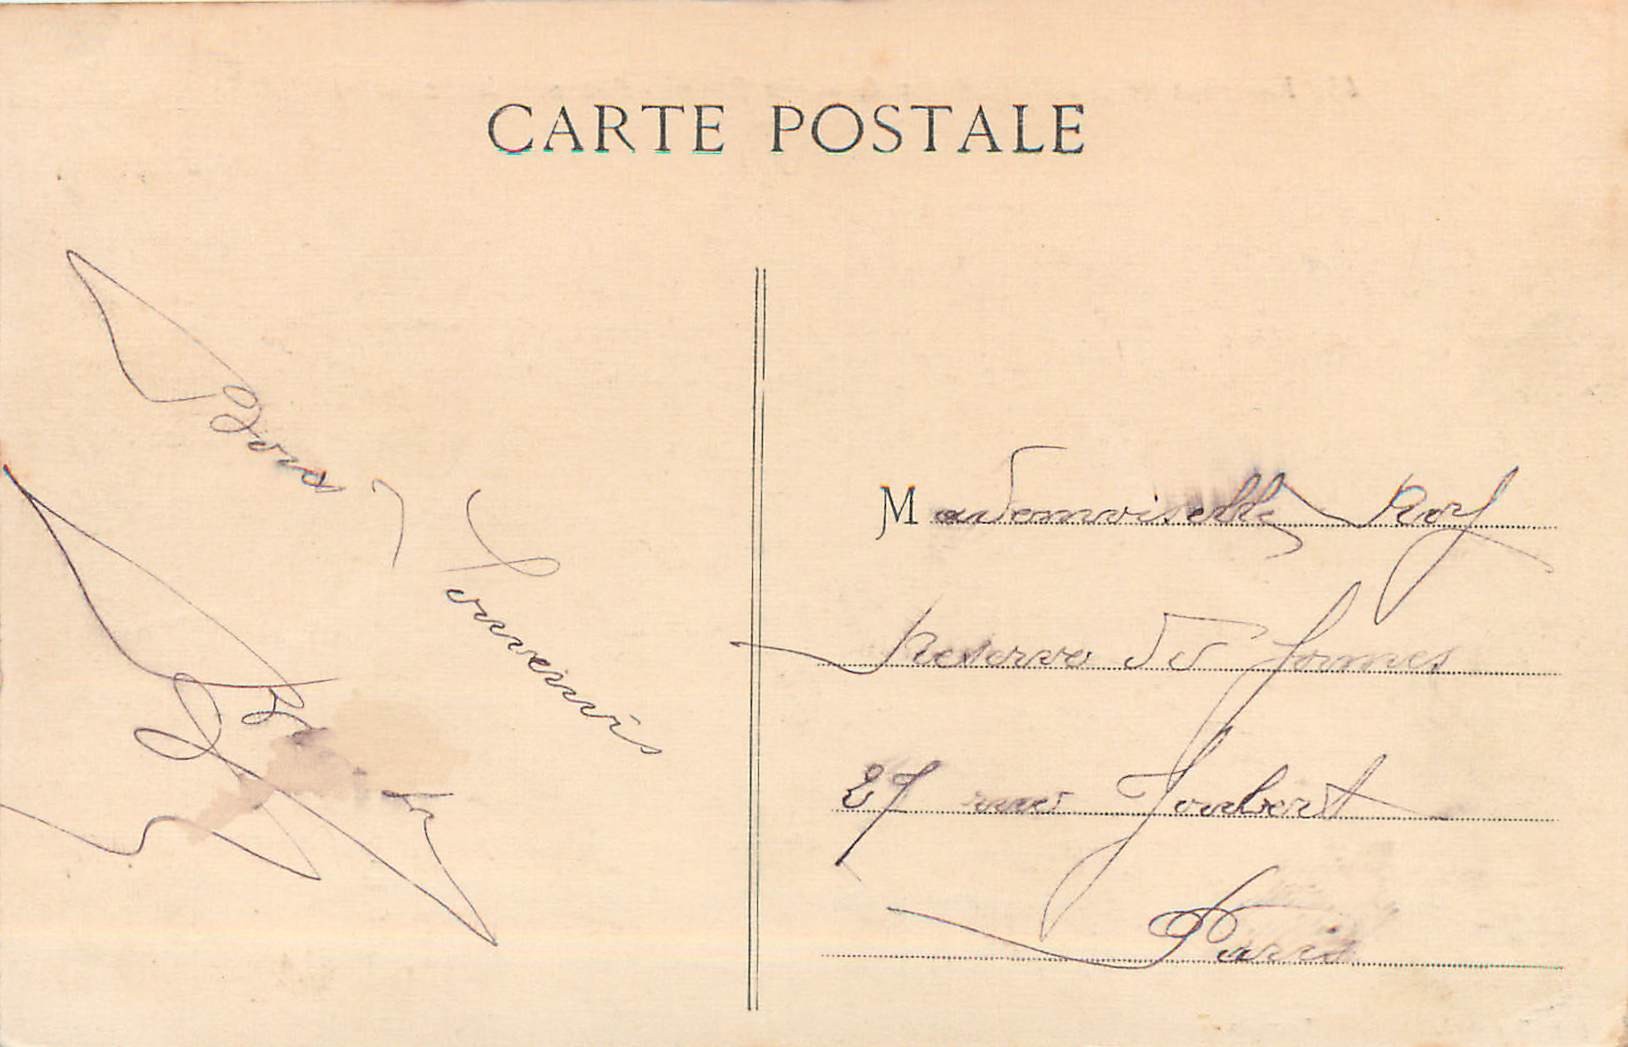 CARTE POSTALE
Bons Souvenirs
Mademoiselle Roy
Reserve des
27 rue Joubert
Paris